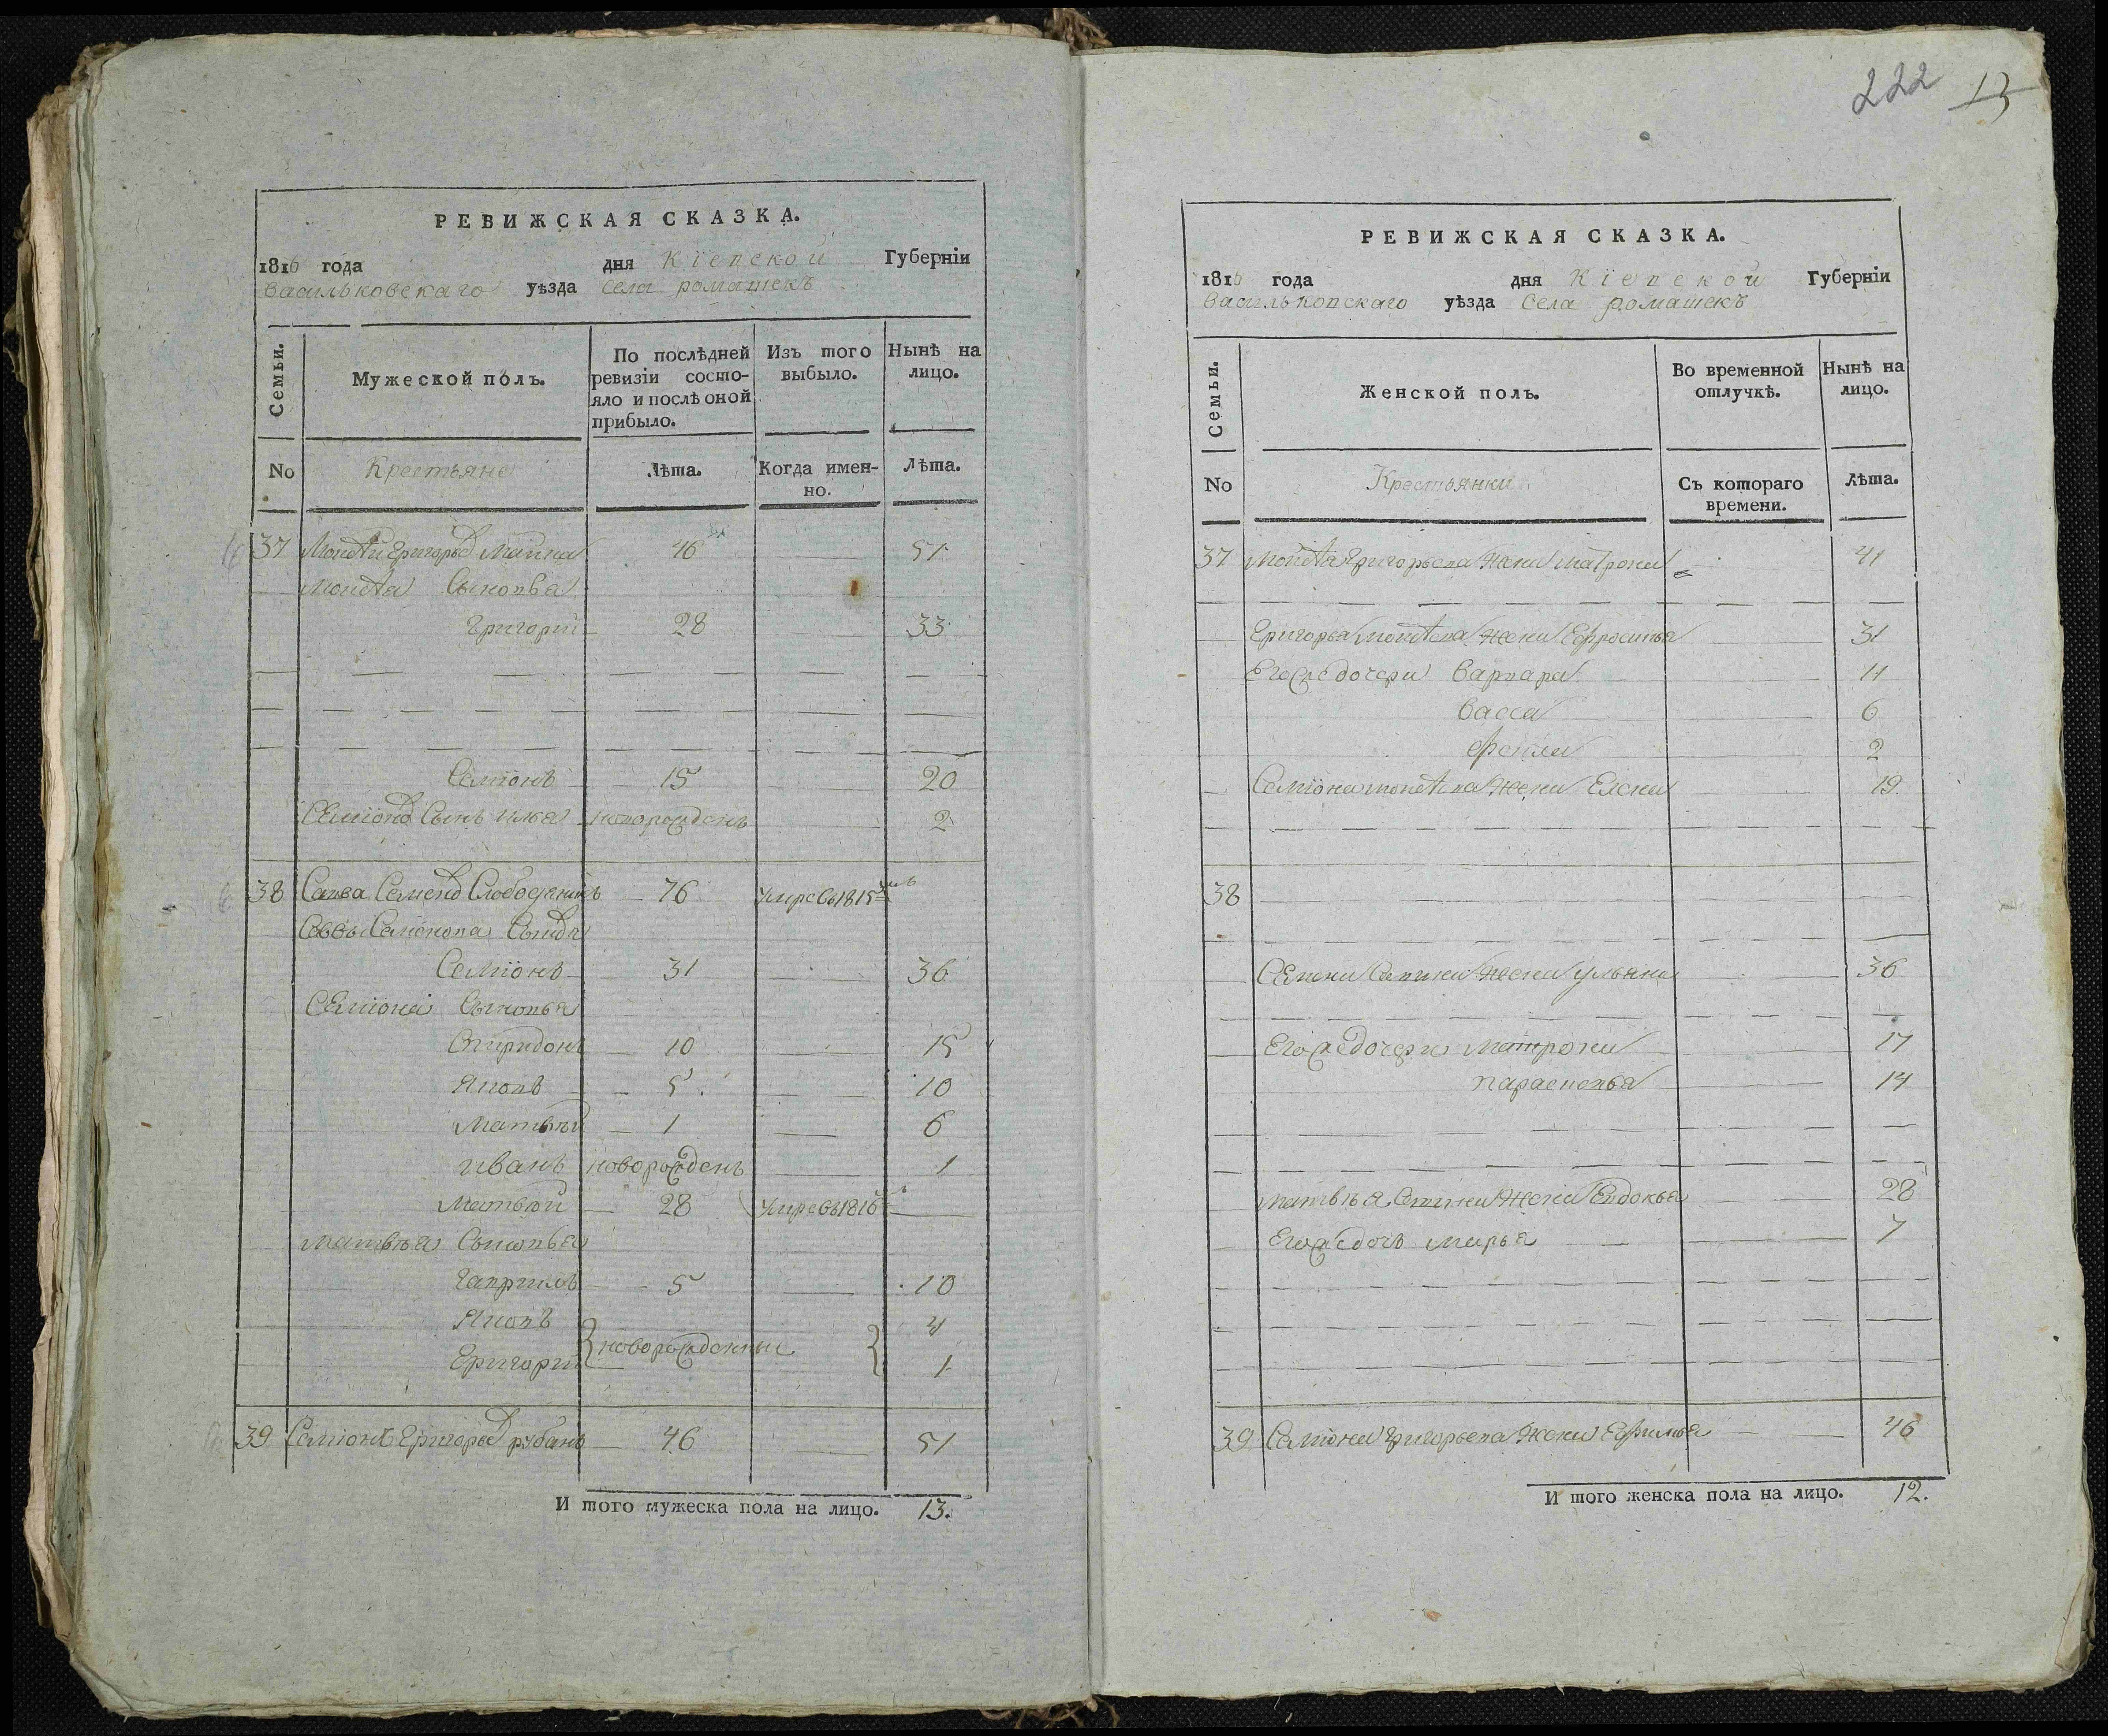 222 13
РЕВИЖСКАЯ СКАЗКА.
1816 года дня Кіевской Губерніи
Васильковскаго уѣзда села ромашекъ
Семьи. Мужеской полъ. По послѣдней ревизіи состояло и послѣ оной прибыло. Изъ того выбыло. Нынѣ на лицо.
No Крестьяне Лѣта. Когда именно. Лѣта.
37 Григорьев 46 51
Сыновья
Григорий 28 33
Семіонъ 15 20
Семіона Сынъ илья новорожденъ 2
38 Савва Семенов Слободяникъ 76 умре въ 1815
Саввы Семіонова Сыновья
Семіонъ 31 36
Семіона Сыновья
Спиридонъ 10 15
Яковъ 5 10
Матвѣй 1 6
иванъ новорожденъ 1
Матвѣй 28 умре въ 1816
матвѣя Сыновья
Гаврилъ 5 10
Яковъ 4
новорожденныи
Григорий 1
39 Семіонъ Григорьев рубанъ 46 51
И того мужеска пола на лицо. 13.
РЕВИЖСКАЯ СКАЗКА.
1816 года дня Кіевской Губерніи
Васильковскаго уѣзда Села ромашекъ
Семьи. Женской полъ. Во временной отлучкѣ. Нынѣ на лицо.
No Крестьянки Съ котораго времени. Лѣта.
37 Григорьева жена Матрона 41
Григорья жена Ефросинья 31
Его же дочери Варвара 11
Васса 6
2
Семіона жена Елена 19.
38
Семена Савина жена ульяна 36
Его же дочери Матрона 17
парасковья 14
матвѣя Савина жена Евдокья 28
Его же дочь марья 7
39 Семіона Григорьева жена Ефимья 46
И того женска пола на лицо. 12.